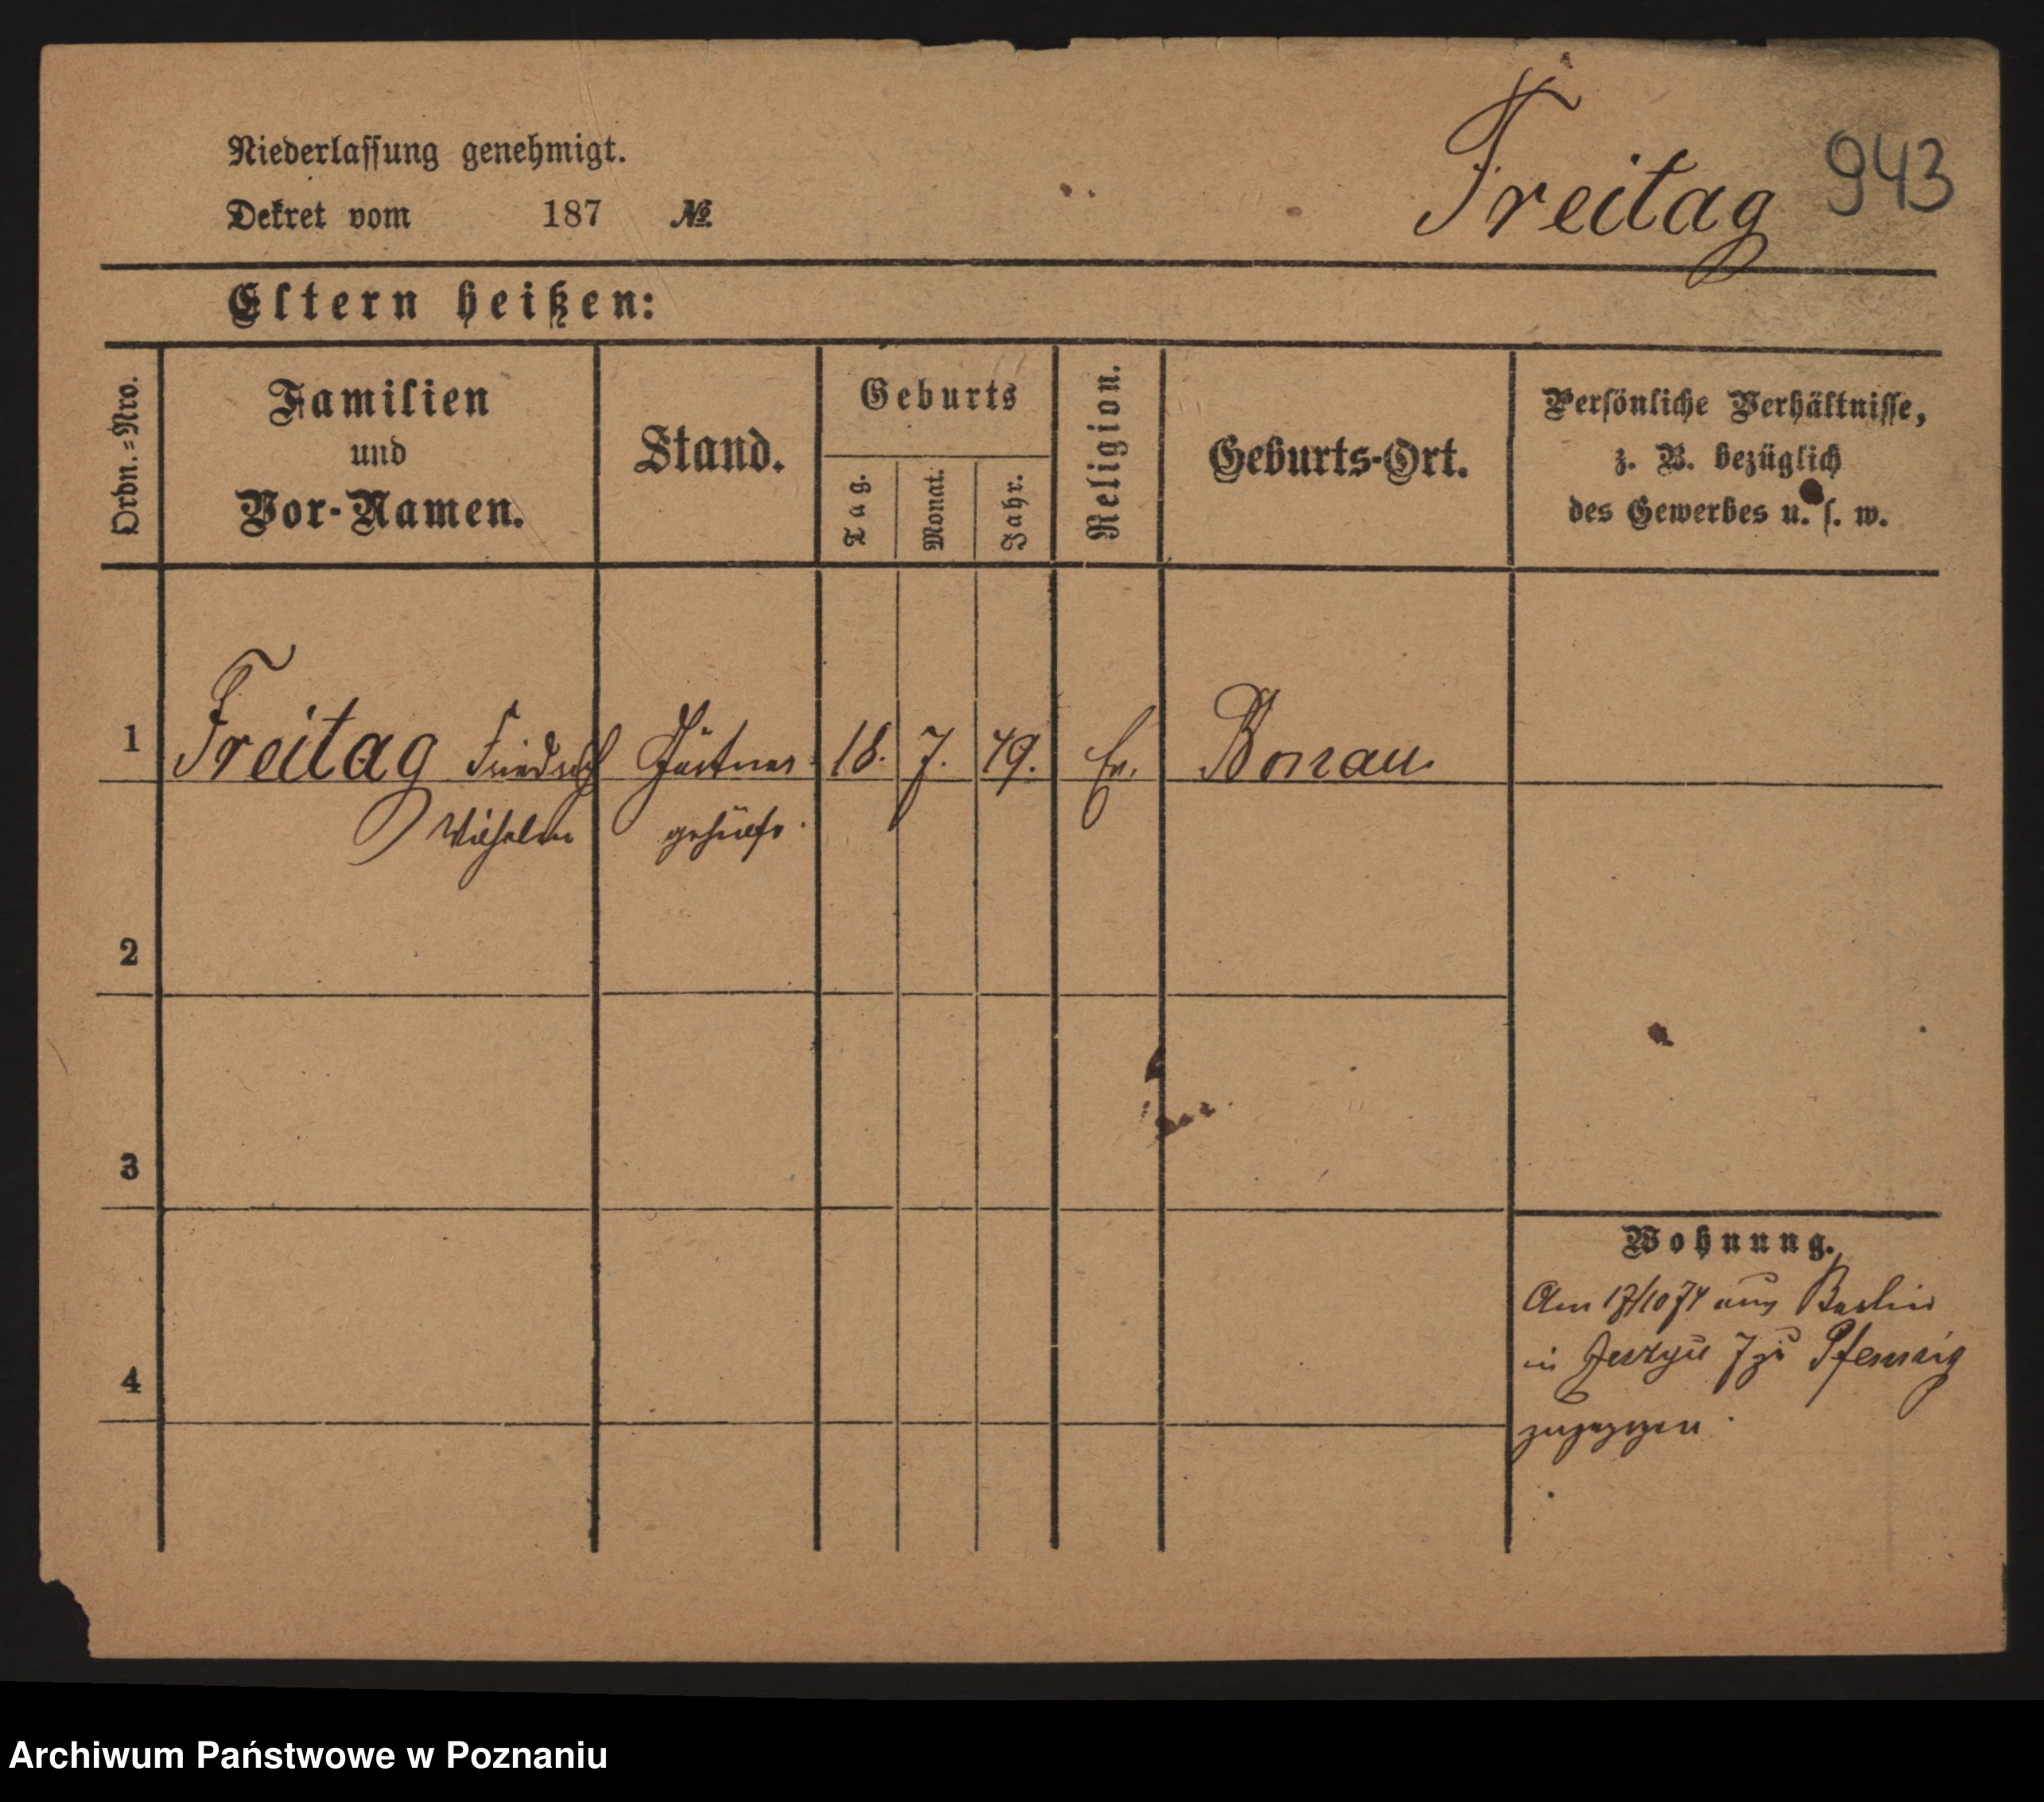 Freitag 943
Niederlassung genehmigt.
Dekret vom 187 №
Eltern heißen:
Ordn.=Nro.
Familien
und
Vor-Namen.
Stand.
Geburts
Tag.
Monat.
Jahr.
Religion.
Geburts-Ort.
Persönliche Verhältnisse,
z. B. bezüglich
des Gewerbes u. s. w.
1 Freitag Friedrich Gärtner 18. 7. 49. Ev.
Wilhelm gehülfe
2
3
4
Wohnung.
Am 17/10 74 aus Berlin
in 7 zu Pfennig
zugezogen
Archiwum Państwowe w Poznaniu